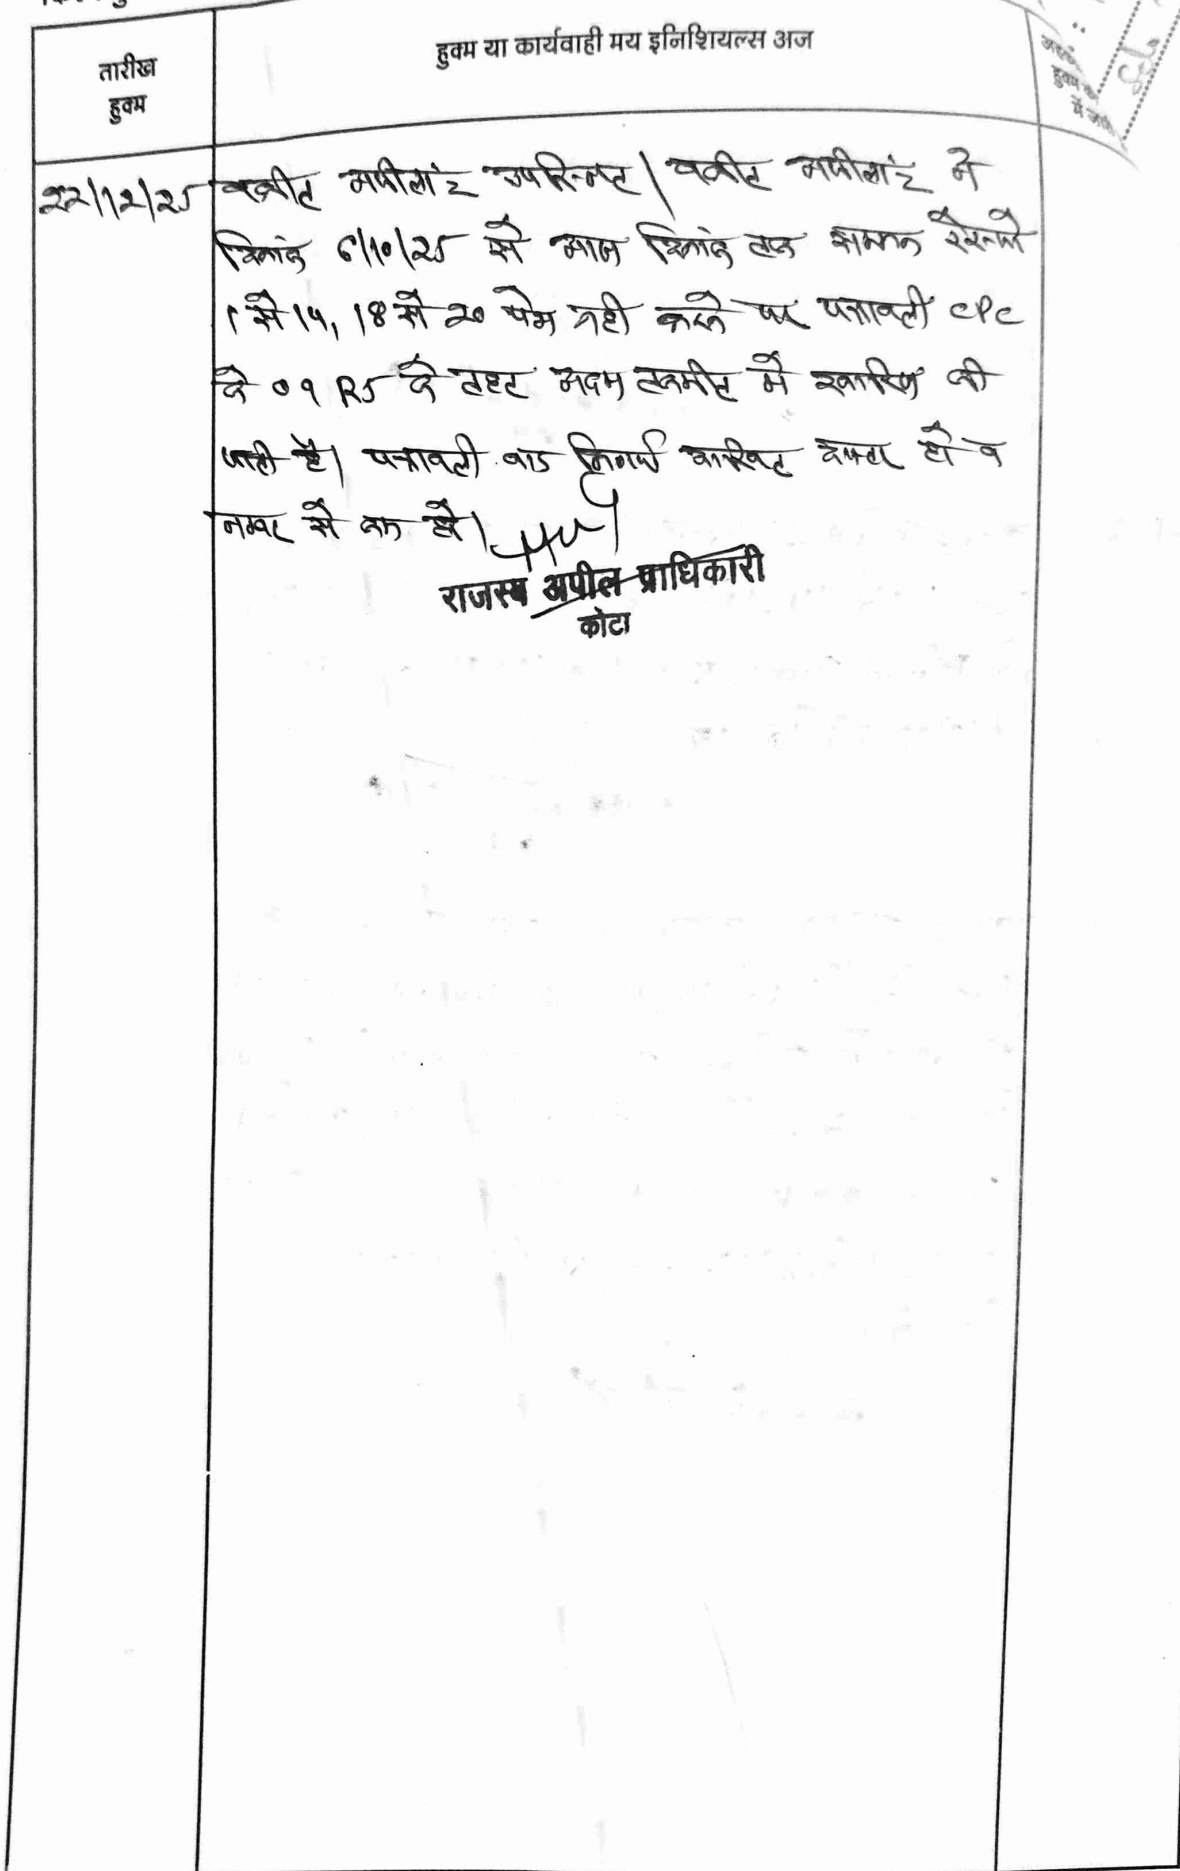 तारीख
हुक्म
हुक्म या कार्यवाही मय इनिशियल्स अज
हुक्म
में
22/12/25 वकील अपीलांट उपस्थित। वकील अपीलांट ने
दिनांक 6/10/25 से आज दिनांक तक सम्मन रेस्पो
1 से 14, 18 से 20 पेश नही करने पर पत्रावली CPC
के 09 R5 के तहत अदम तकमील में खारिज की
जाती है। पत्रावली बाद निर्णय दाखिल दफ्तर हो व
नम्बर से कम हो।
राजस्व अपील प्राधिकारी
कोटा